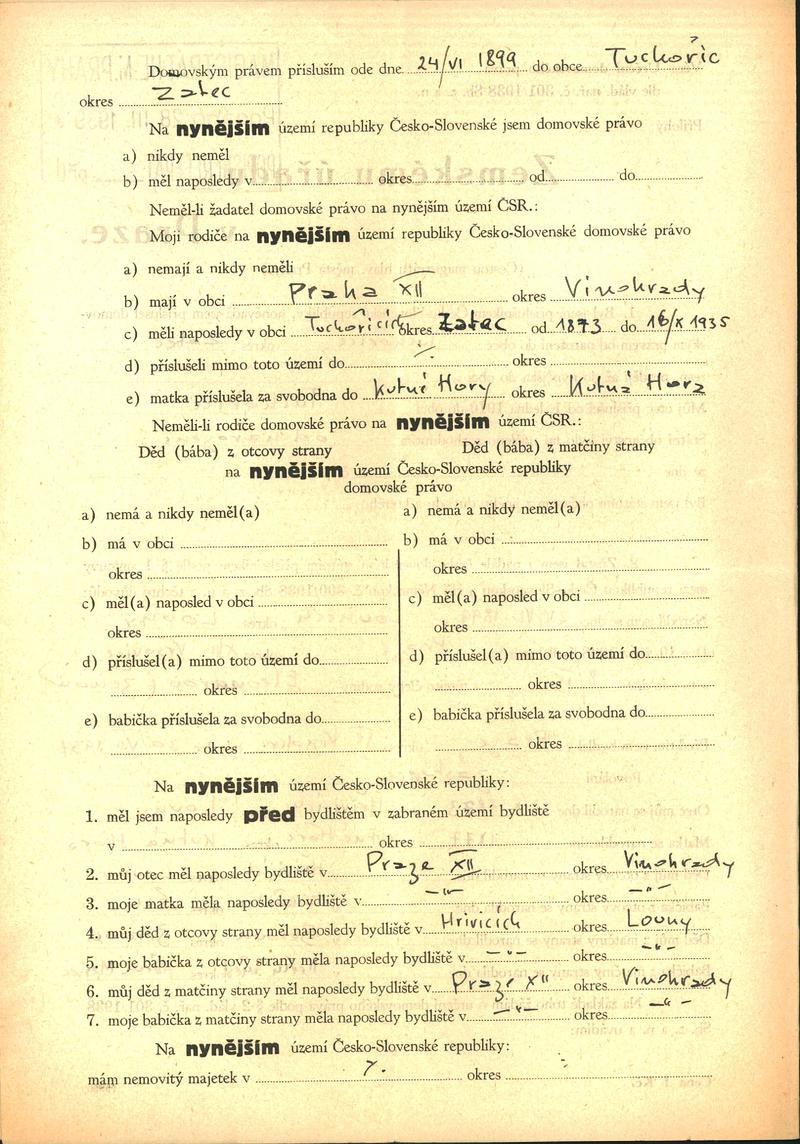 Domovským právem přísluším ode dne 24/VI 1899 do obce Tuchořic
okres Žatec
Na nynějším území republiky Česko-Slovenské jsem domovské právo
a) nikdy neměl
b) měl naposledy v okres od do
Neměl-li žadatel domovské právo na nynějším území ČSR.:
Moji rodiče na nynějším území republiky Česko-Slovenské domovské právo
a) nemají a nikdy neměli
b) mají v obci Praha XII okres Vinohrady
c) měli naposledy v obci Tuchořicích okres Žatec od 1873 do 16/X 1935
d) příslušeli mimo toto území do okres
e) matka příslušela za svobodna do Kutné Hory okres Kutná Hora
Neměli-li rodiče domovské právo na nynějším území ČSR.:
Děd (bába) z otcovy strany Děd (bába) z matčiny strany
na nynějším území Česko-Slovenské republiky
domovské právo
a) nemá a nikdy neměl(a)
b) má v obci
okres
c) měl(a) naposled v obci
okres
d) příslušel(a) mimo toto území do
okres
e) babička příslušela za svobodna do
okres
a) nemá a nikdy neměl(a)
b) má v obci
okres
c) měl(a) naposled v obci
okres
d) příslušel(a) mimo toto území do
okres
e) babička příslušela za svobodna do
okres
Na nynějším území Česko-Slovenské republiky:
1. měl jsem naposledy před bydlištěm v zabraném území bydliště
v okres
2. můj otec měl naposledy bydliště v Praze XII okres Vinohrady
3. moje matka měla naposledy bydliště v -"- okres -"-
4. můj děd z otcovy strany měl naposledy bydliště v Hřivicích okres Louny
5. moje babička z otcovy strany měla naposledy bydliště v -"- okres -"-
6. můj děd z matčiny strany měl naposledy bydliště v Praze XII okres Vinohrady
7. moje babička z matčiny strany měla naposledy bydliště v -"- okres -"-
Na nynějším území Česko-Slovenské republiky:
mám nemovitý majetek v okres